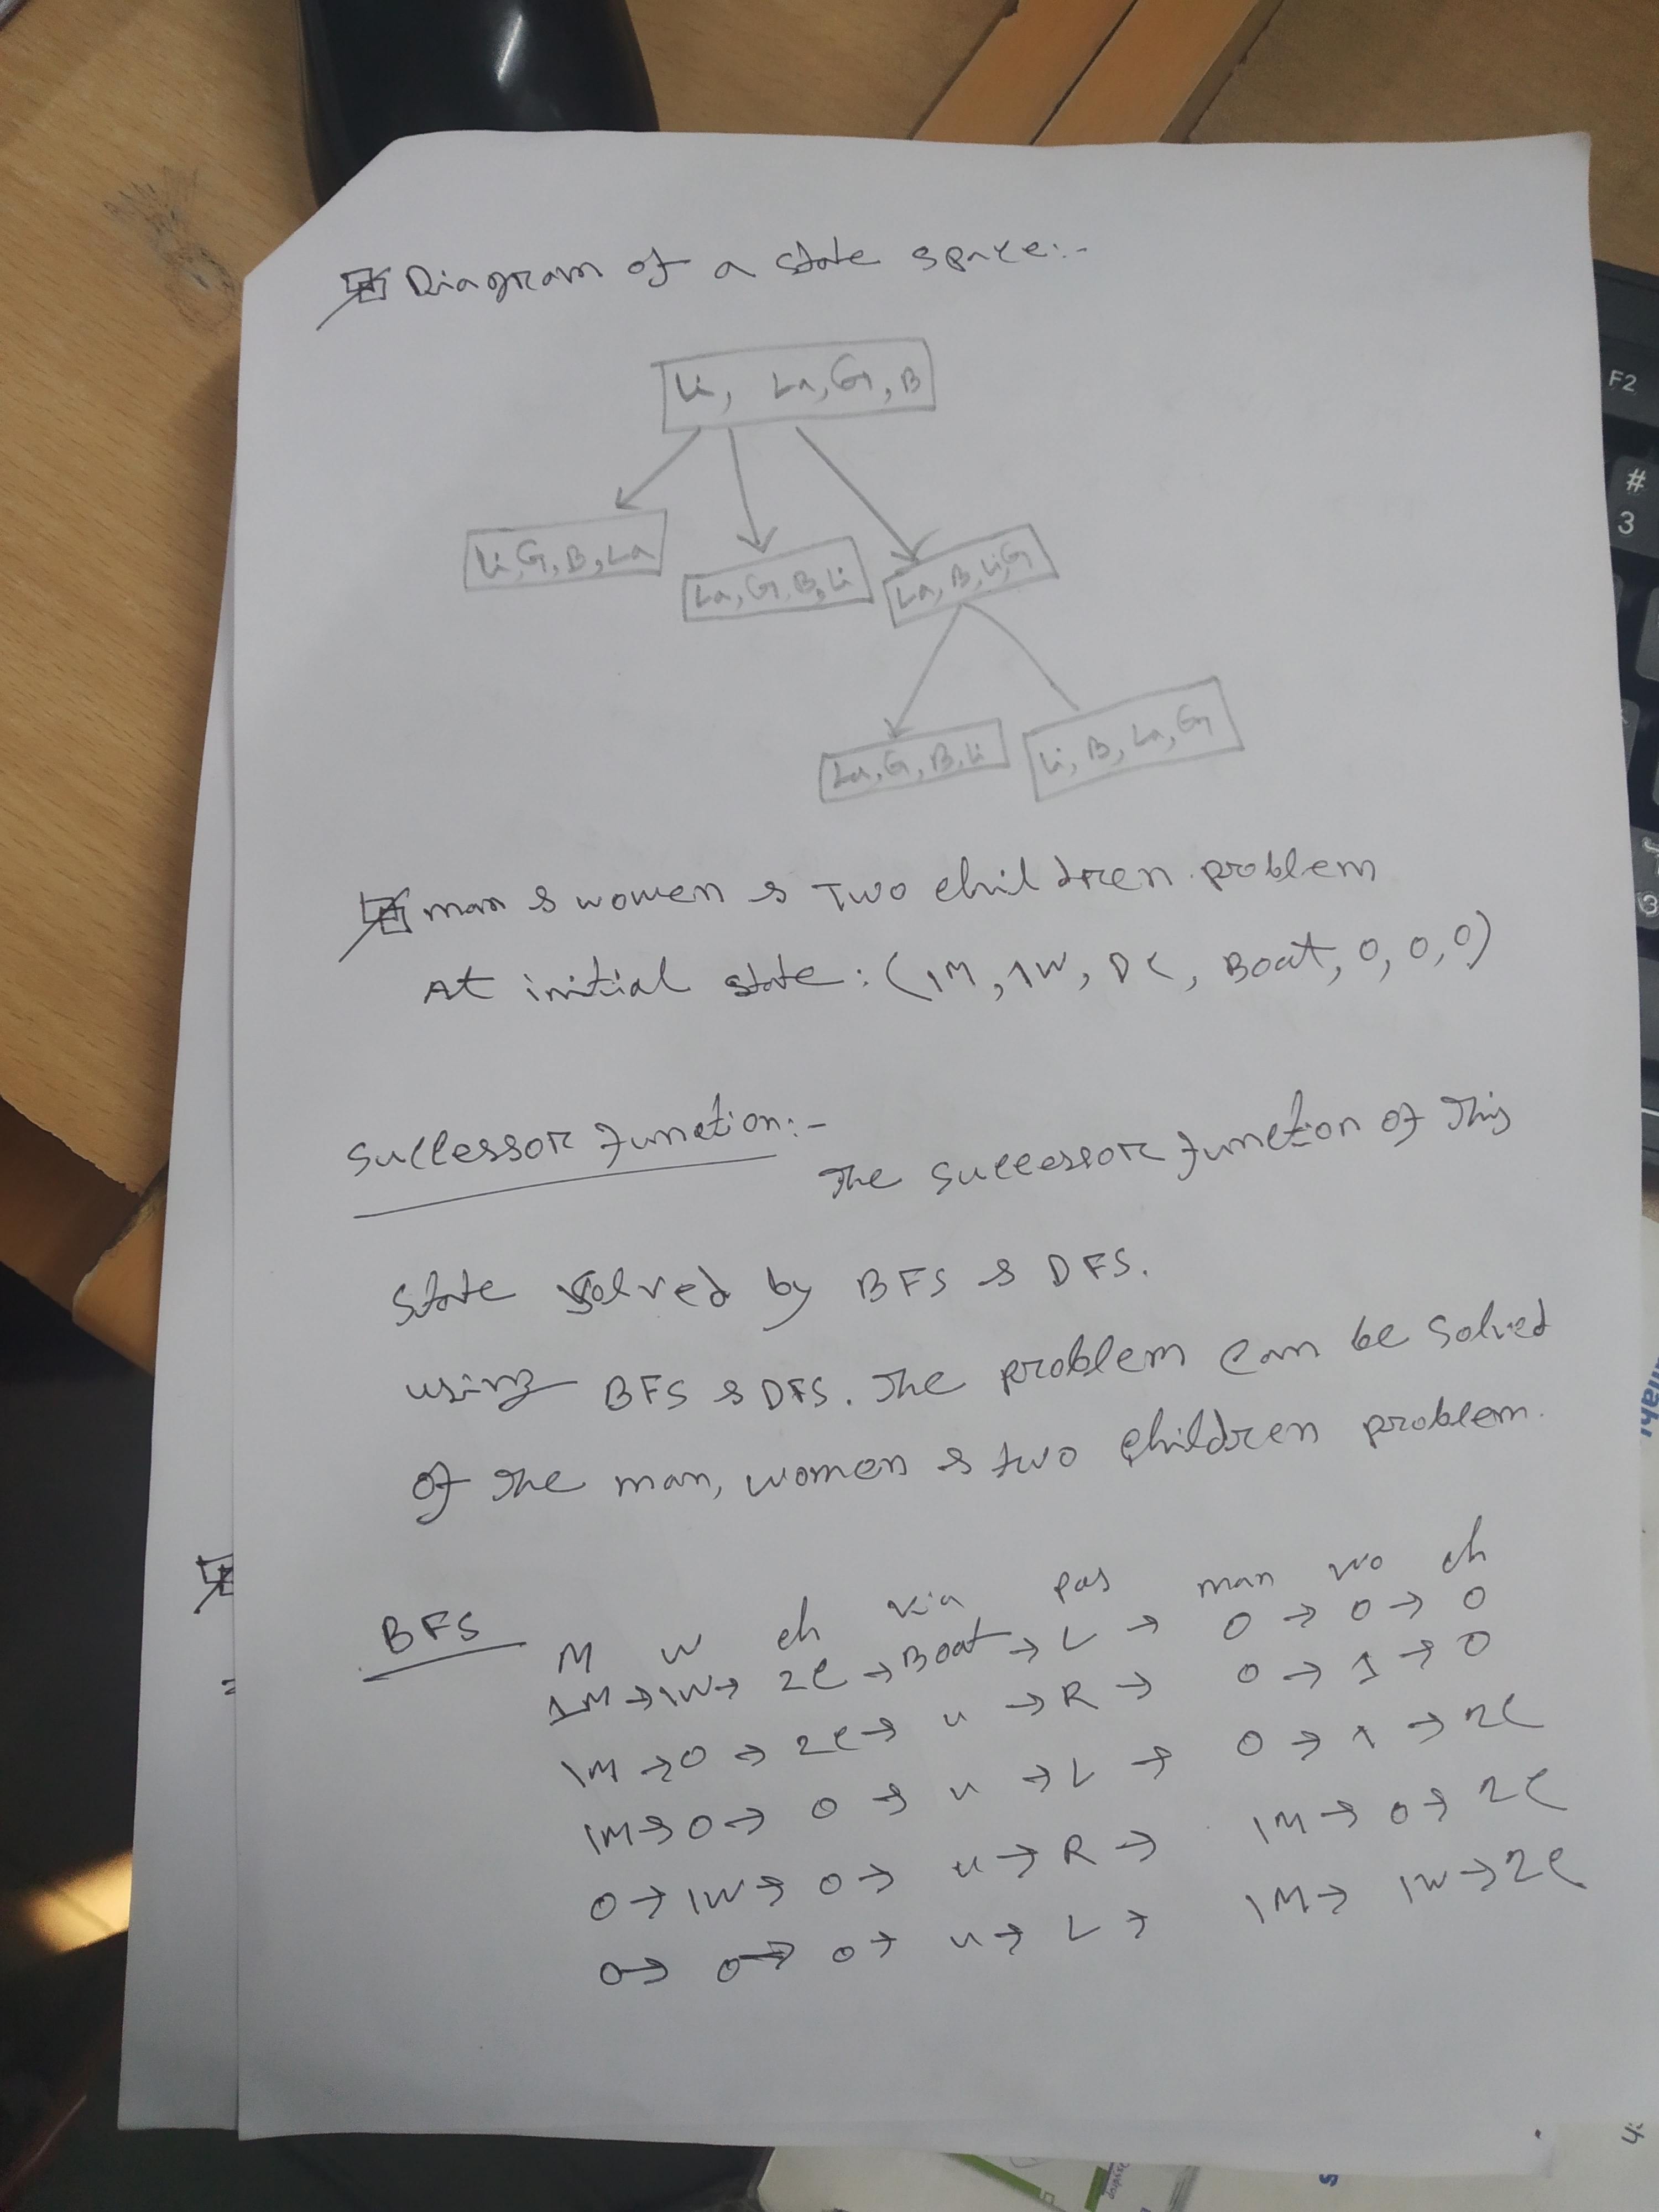 Diagram of a state space:-
Li, La, G, B
Li, G, B, La
La, G, B, Li
La, B, Li, G
La, G, B, Li
Li, B, La, G
man & women & Two children problem
At initial state: (1M, 1W, DC, Boat, 0, 0, 0)
Successor function:- The successor function of This
State solved by BFS & DFS.
using BFS & DFS. The problem can be solved
of the man, women & two children problem.
BFS
M W ch via pas man wo ch
1M → 1W → 2C → Boat → L → 0 → 0 → 0
1M → 0 → 2C → u → R → 0 → 1 → 0
1M → 0 → 0 → u → L → 0 → 1 → 2C
0 → 1W → 0 → u → R → 1M → 0 → 2C
0 → 0 → 0 → u → L → 1M → 1W → 2C
F2
#
3